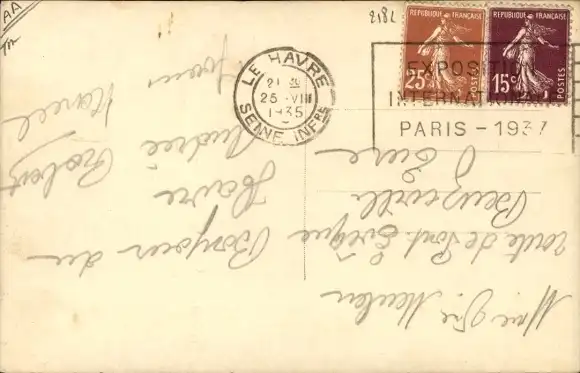 AA
2182
REPUBLIQUE FRANÇAISE
25c
POSTES
REPUBLIQUE FRANÇAISE
15c
POSTES
LE HAVRE
21
25 -VIII
1935
SEINE INFRE
EXPOSITION
INTERNATIONALE
PARIS - 1937
Bonjour du
Havre
Andrée
Robert
Marcel
Mme Vve
route de Pont Evêque
Beuzeville
Eure